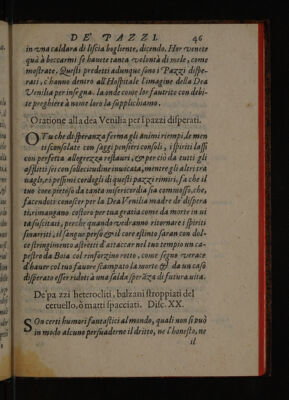 DE' PAZZI. 46
in vna caldara di liscia bogliente, dicendo. Hor venete
quà à beccarmi se hauete tanta volontà di mele, come
mostrate. Questi predetti adunque sono i Pazzi dispe-
rati, c'hanno dentro all'Hospitale l'imagine della Dea
Venilia per insegna. la onde come lor fautrice con debi-
te preghiere à nome loro la supplichiamo.
Oratione alla dea Venilia per i pazzi disperati.
O Tu che di speranza fermagli animi riempi, le men
ti sconsolate con saggi pensieri consoli, i spiriti lassi
con perfetta allegrezza restauri, & per ciò da tutti gli
afflitti sei con sollecitudine inuocata, mentre gli altri tra
uagli, e oppressi cordogli di questi pazzi rimiri, fa che il
tuo core pietoso da tanta misericordia sia commosso, che,
facendoti conoscer per la Dea Venilia madre de' dispera
ti, rimangano costoro per tua gratia come da morte in vi
ta suscitati, perche quando vedranno ritornare i spiriti
smarriti, il sangue perso, & il core estinto saran con dol-
ce stringimento astretti d'attaccar nel tuo tempio un ca-
pestro da Boia col rinforzino rotto, come segno verace
d'hauer col tuo fauore scampato la morte & da un caso
disperato esser ridotti à una salda speranza di futura aita.
De' pazzi heterocliti, balzani stroppiati del
ceruello, ò matti spacciati. Disc. XX.
SOn certi humori fantastici al mondo, quali non si può
in modo alcuno persuaderne il dritto, ne l'honesto, ne
il